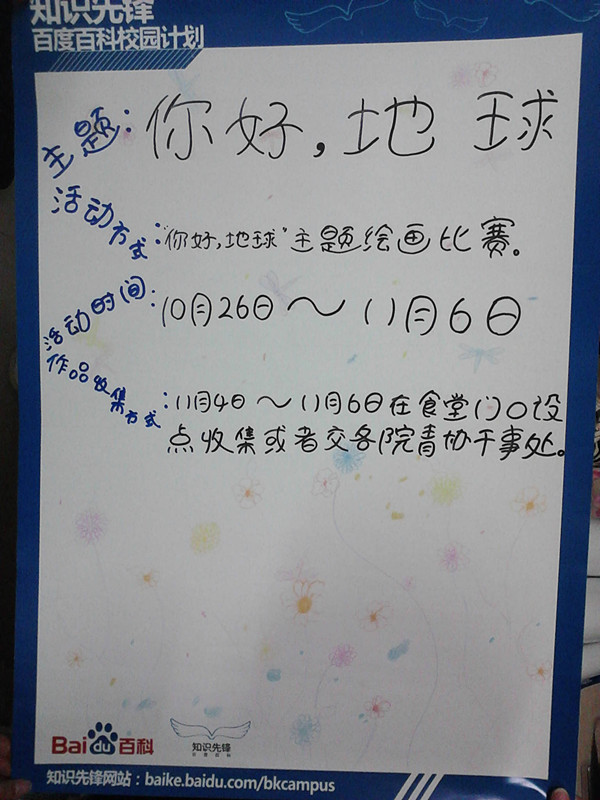 知识先锋
百度百科校园计划
主题：你好，地球
活动方式：“你好，地球”主题绘画比赛。
活动时间：10月26日～11月6日
作品收集方式：11月4日～11月6日在食堂门口设
点收集或者交各院青协干事处。
Bai du 百科
知识先锋
知识先锋网站：baike.baidu.com/bkcampus